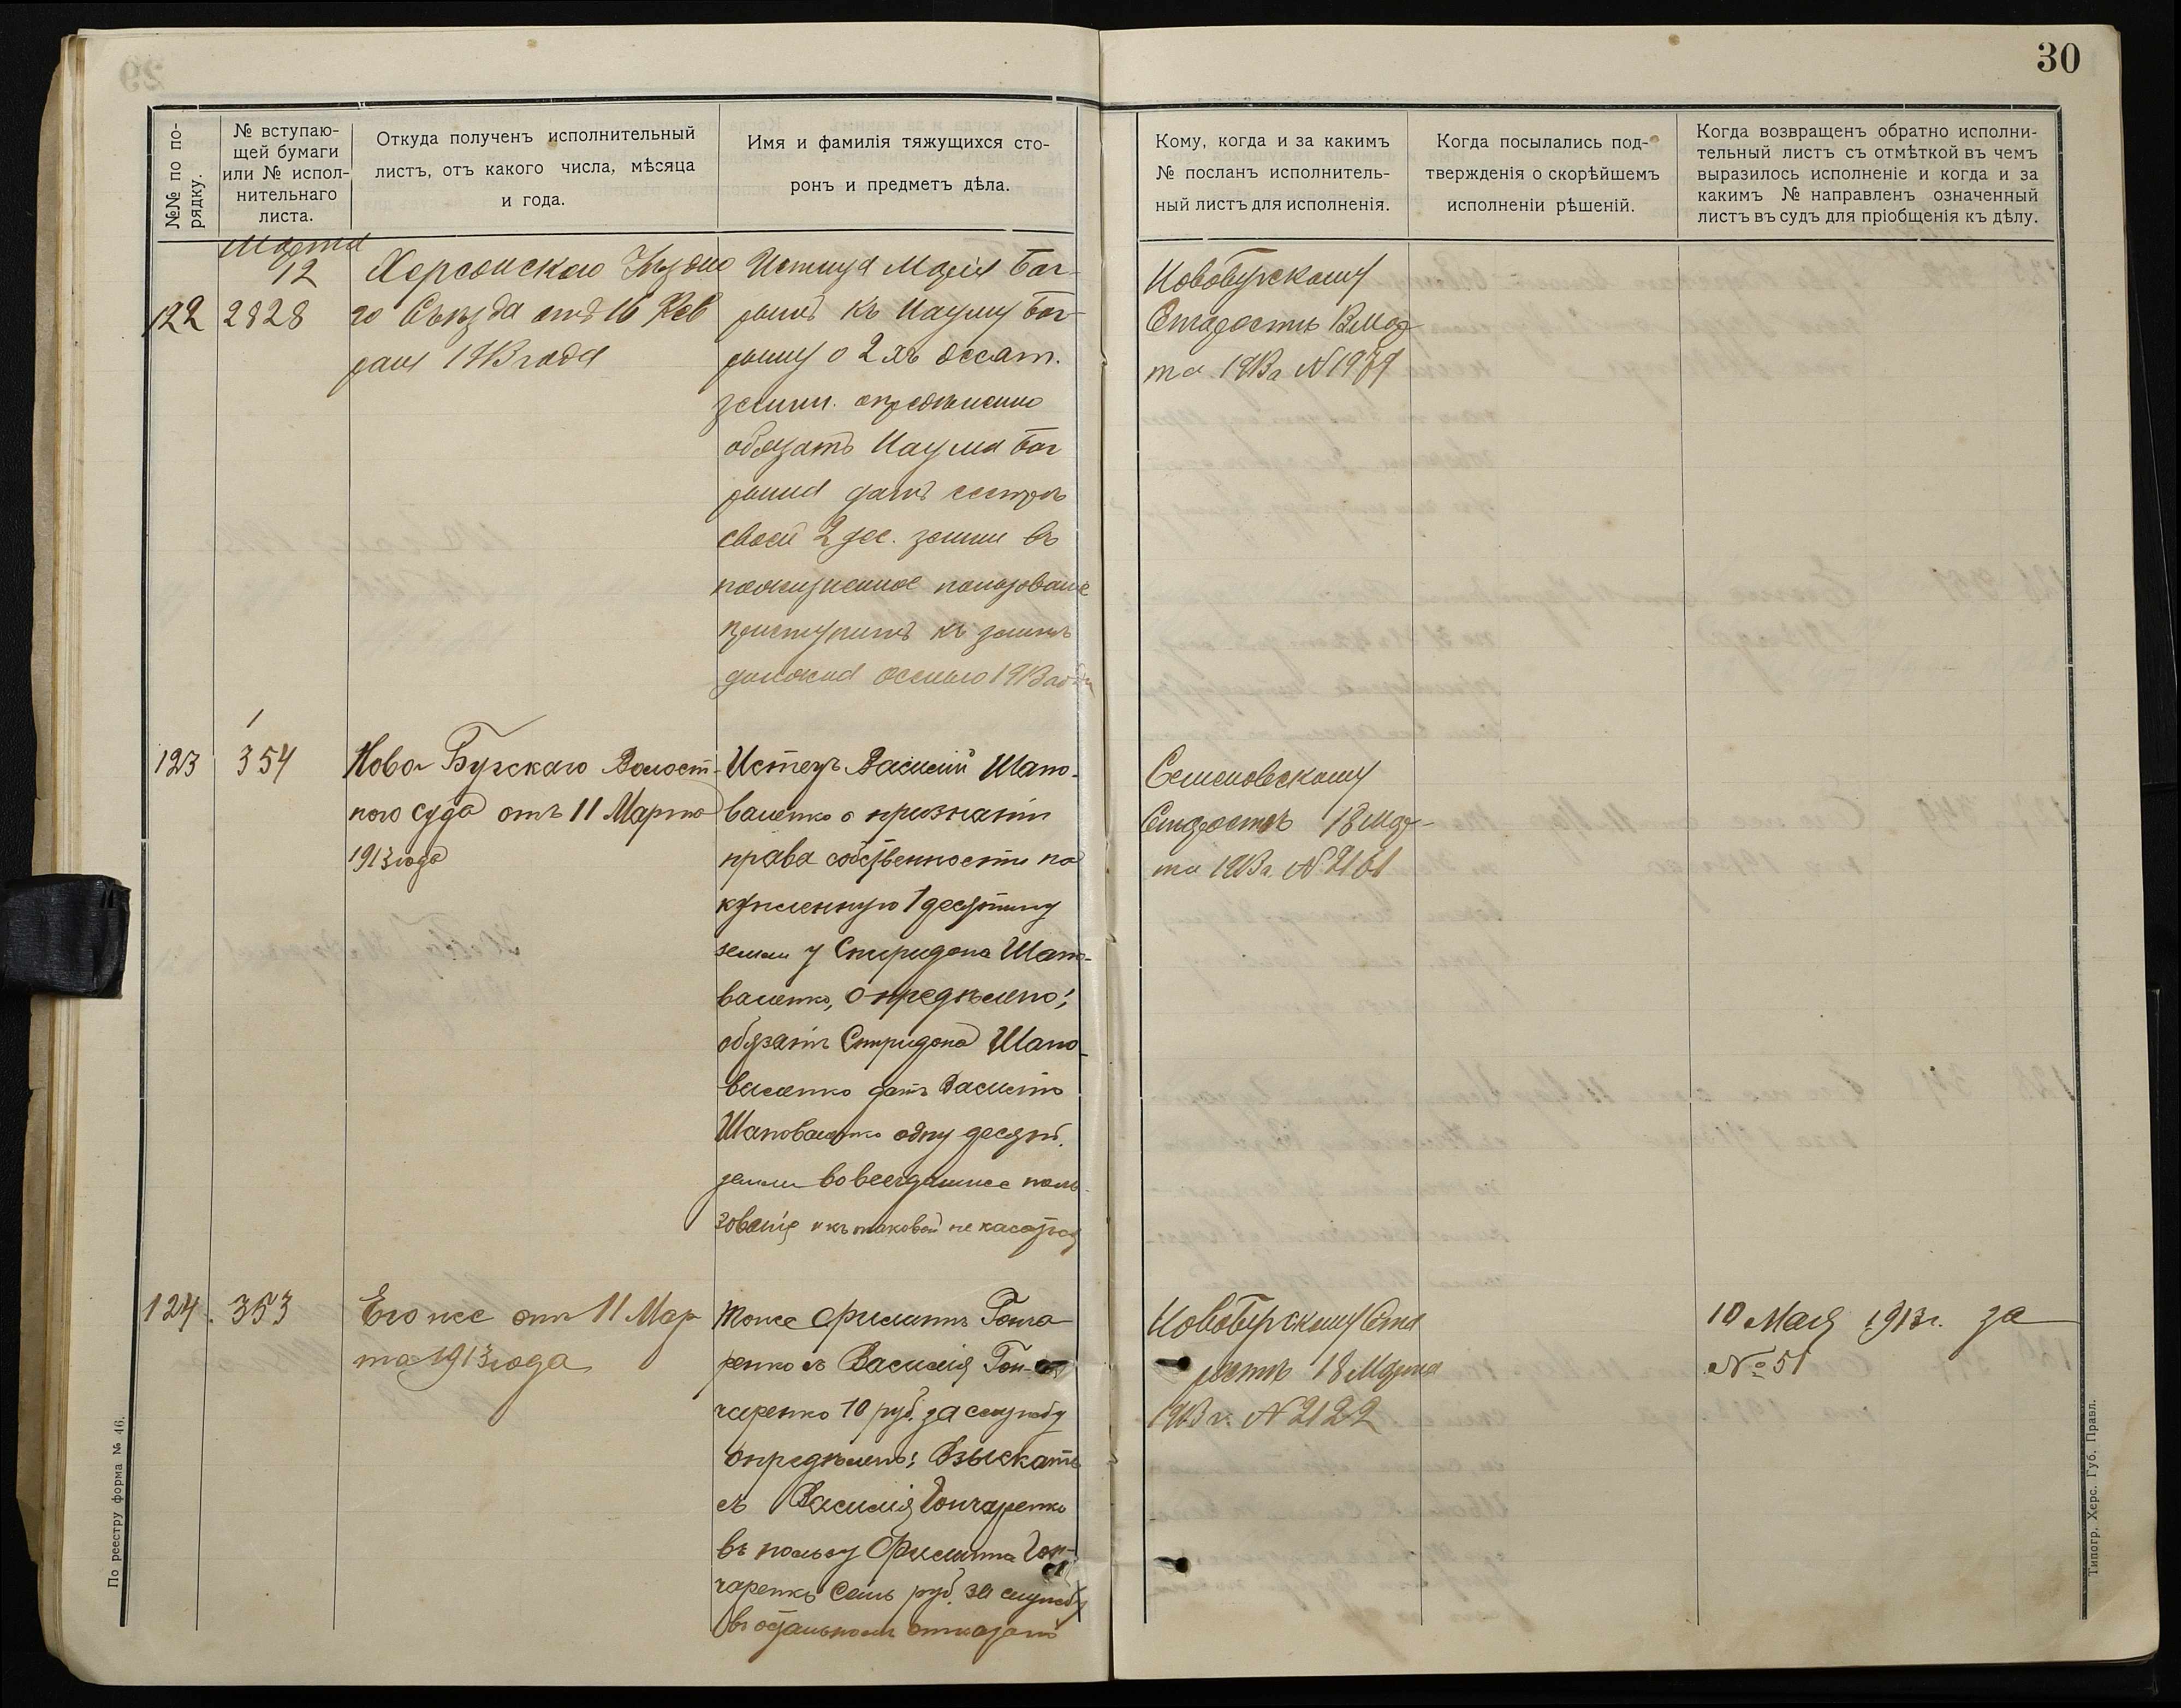 30
№№ по по-
рядку.
№ вступаю-
щей бумаги
или № испол-
нительнаго
листа.
Откуда полученъ исполнительный
листъ, отъ какого числа, мѣсяца
и года.
Имя и фамилія тяжущихся сто-
ронъ и предметъ дѣла.
Кому, когда и за какимъ
№ посланъ исполнитель-
ный листъ для исполненія.
Когда посылались под-
твержденія о скорѣйшемъ
исполненіи рѣшеній.
Когда возвращенъ обратно исполни-
тельный листъ съ отмѣткой въ чемъ
выразилось исполненіе и когда и за
какимъ № направленъ означенный
листъ въ судъ для пріобщенія къ дѣлу.
Марта
12
122
2828
Херсонскаго Уѣздна
го Съѣзда отъ 16 Фев
раля 1913 года
Истица Марія Баг-
къ Науму Баг-
о 2 хъ десят.
земли. опредѣлено
обязать Наума Баг
дать сестрѣ
своей 2 дес. земли въ
пожизненное пользованіе
приступить къ землѣ
должна осенью 1913 года
Новобугскому
Старостѣ 13 Мар-
та 1913 г. № 1979
1
123
354
Ново Бугскаго Волост-
ного суда отъ 11 Марта
1913 года
Истецъ Василій Шапо-
валенко о признаніи
права собственности на
купленную 1 десятину
земли у Спиридона Шапо-
валенко, опредѣлено:
обязать Спиридона Шапо-
валенко дать Василію
Шаповаленко одну десят.
земли во всегдашнее поль-
зованіе и къ таковой не касаться
Семеновскому
Старостѣ 18 Мар-
та 1913 г. № 2161
124.
353
Его же отъ 11 Мар
та 1913 года
тоже Филиппъ Гонча-
ренко съ Василія Гон-
чаренко 10 руб. за службу
опредѣлено: Взыскать
съ Василія Гончаренко
въ пользу Филиппа Гон-
чаренко семь руб. за службу
въ остальномъ отказать
Новобугскому Ста
ростѣ 18 Марта
1913 г. № 2122
10 Мая 1913 г. за
№ 51
По реестру форма № 46.
Типогр. Херс. Губ. Правл.